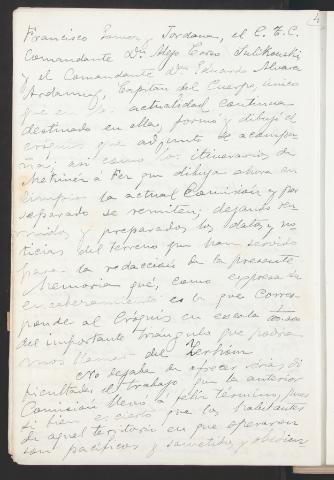 Francisco Gomez Jordana, el C. T. C.
Comandante Dn. Alejo Corso Sulikowski
y el Comandante Dn. Eduardo Alvarez
Ardanuy, Capitán del Cuerpo, único
que en la actualidad continua
destinado en ella, formó y dibujó el
cróquis que adjunto se acompa-
ña; así como los itinerarios de
Mekinez á Fez que dibuja ahora en
limpio la actual Comisión y por
separado se remiten; dejando re-
unidos y preparados los datos y no-
ticias del terreno que han servido
para la redacción de la presente
Memoria que, como expresa su
encabezamiento es la que corres-
ponde al Cróquis en escala
del importante triángulo que podría-
mos llamar del Zerhón
No dejaba de ofrecer sérias di-
ficultades el trabajo que la anterior
Comisión llevó á feliz término, pues
si bien es cierto que los habitantes
de aquel territorio en que operaron
son pacíficos y sometidos y obedien-